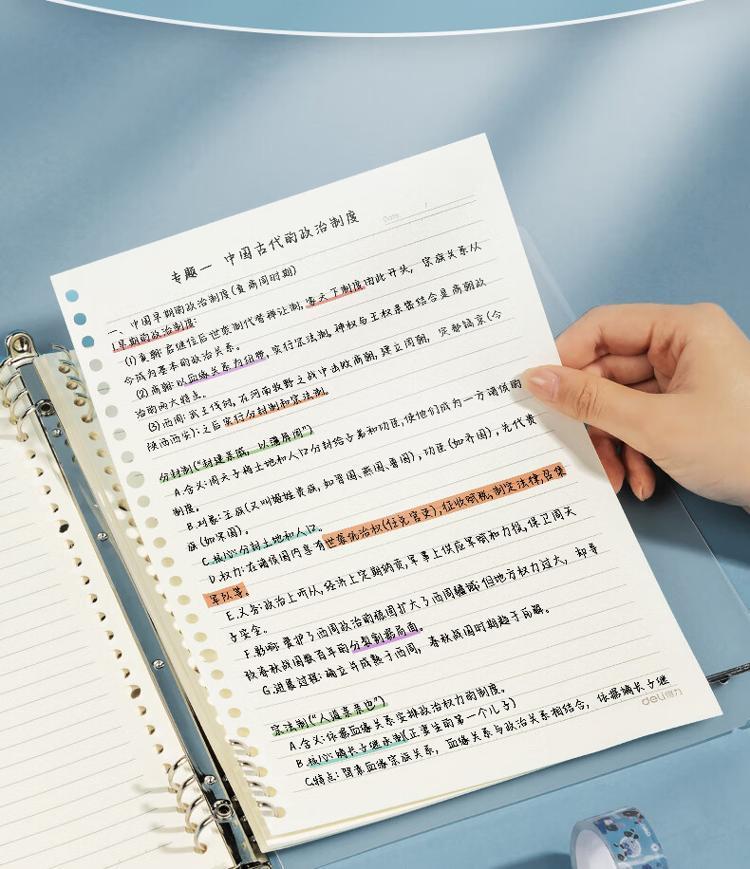 专题一 中国古代的政治制度
Date
一、中国早期的政治制度(夏商周时期)
1.早期的政治制度:
(1)夏朝:启继位后世袭制代替禅让制,家天下制度由此开头,宗族关系从
今成为基本的政治关系。
(2)商朝:以血缘关系为纽带,实行宗法制,神权与王权紧密结合是商朝政
治的两大特点。
(3)西周:武王伐纣,在河南牧野之战中击败商朝,建立周朝,定都镐京(今
陕西西安);之后实行分封制和宗法制。
分封制("封建亲戚,以藩屏周")
A.含义:周天子将土地和人口分封给子弟和功臣,使他们成为一方诸侯的
制度。
B.对象:王族(又叫姬姓贵族,如晋国、燕国、鲁国),功臣(如齐国),先代贵
族(如宋国)。
C.核心:分封土地和人口。
D.权力:在诸侯国内享有世袭统治权(任免官吏),征收赋税,制定法律,召集
军队等。
E.义务:政治上听从,经济上定期纳贡,军事上供应军赋和力役,保卫周天
子安全。
F.影响:爱护了西周政治的稳固扩大了西周疆域;但地方权力过大,却导
致春秋战国数百年的分裂割据局面。
G.进展过程:确立并成熟于西周,春秋战国时期趋于瓦解。
宗法制("人道亲亲也")
A.含义:依据血缘关系安排政治权力的制度。
B.核心:嫡长子继承制(正妻生的第一个儿子)
C.特点:関素血缘宗族关系,血缘关系与政治关系相结合,依据嫡长子继
deli得力